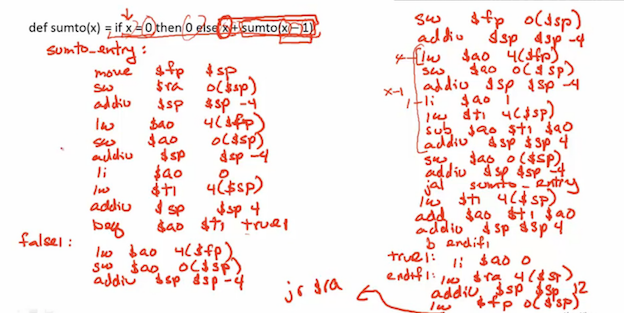 def sumto(x) = if x = 0 then 0 else x + sumto(x – 1)
sumto_entry:
move $fp $sp
sw $ra 0($sp)
addiu $sp $sp -4
lw $a0 4($fp)
sw $a0 0($sp)
addiu $sp $sp -4
li $a0 0
lw $t1 4($sp)
addiu $sp $sp 4
beq $a0 $t1 true1
false1:
lw $a0 4($fp)
sw $a0 0($sp)
addiu $sp $sp -4
sw $fp 0($sp)
addiu $sp $sp -4
x lw $a0 4($fp)
sw $a0 0($sp)
x-1 addiu $sp $sp -4
1 li $a0 1
lw $t1 4($sp)
sub $a0 $t1 $a0
addiu $sp $sp 4
sw $a0 0($sp)
addiu $sp $sp -4
jal sumto_entry
lw $t1 4($sp)
add $a0 $t1 $a0
addiu $sp $sp 4
b endif1
true1: li $a0 0
endif1: lw $ra 4($sp)
addiu $sp $sp 12
lw $fp 0($sp)
jr $ra